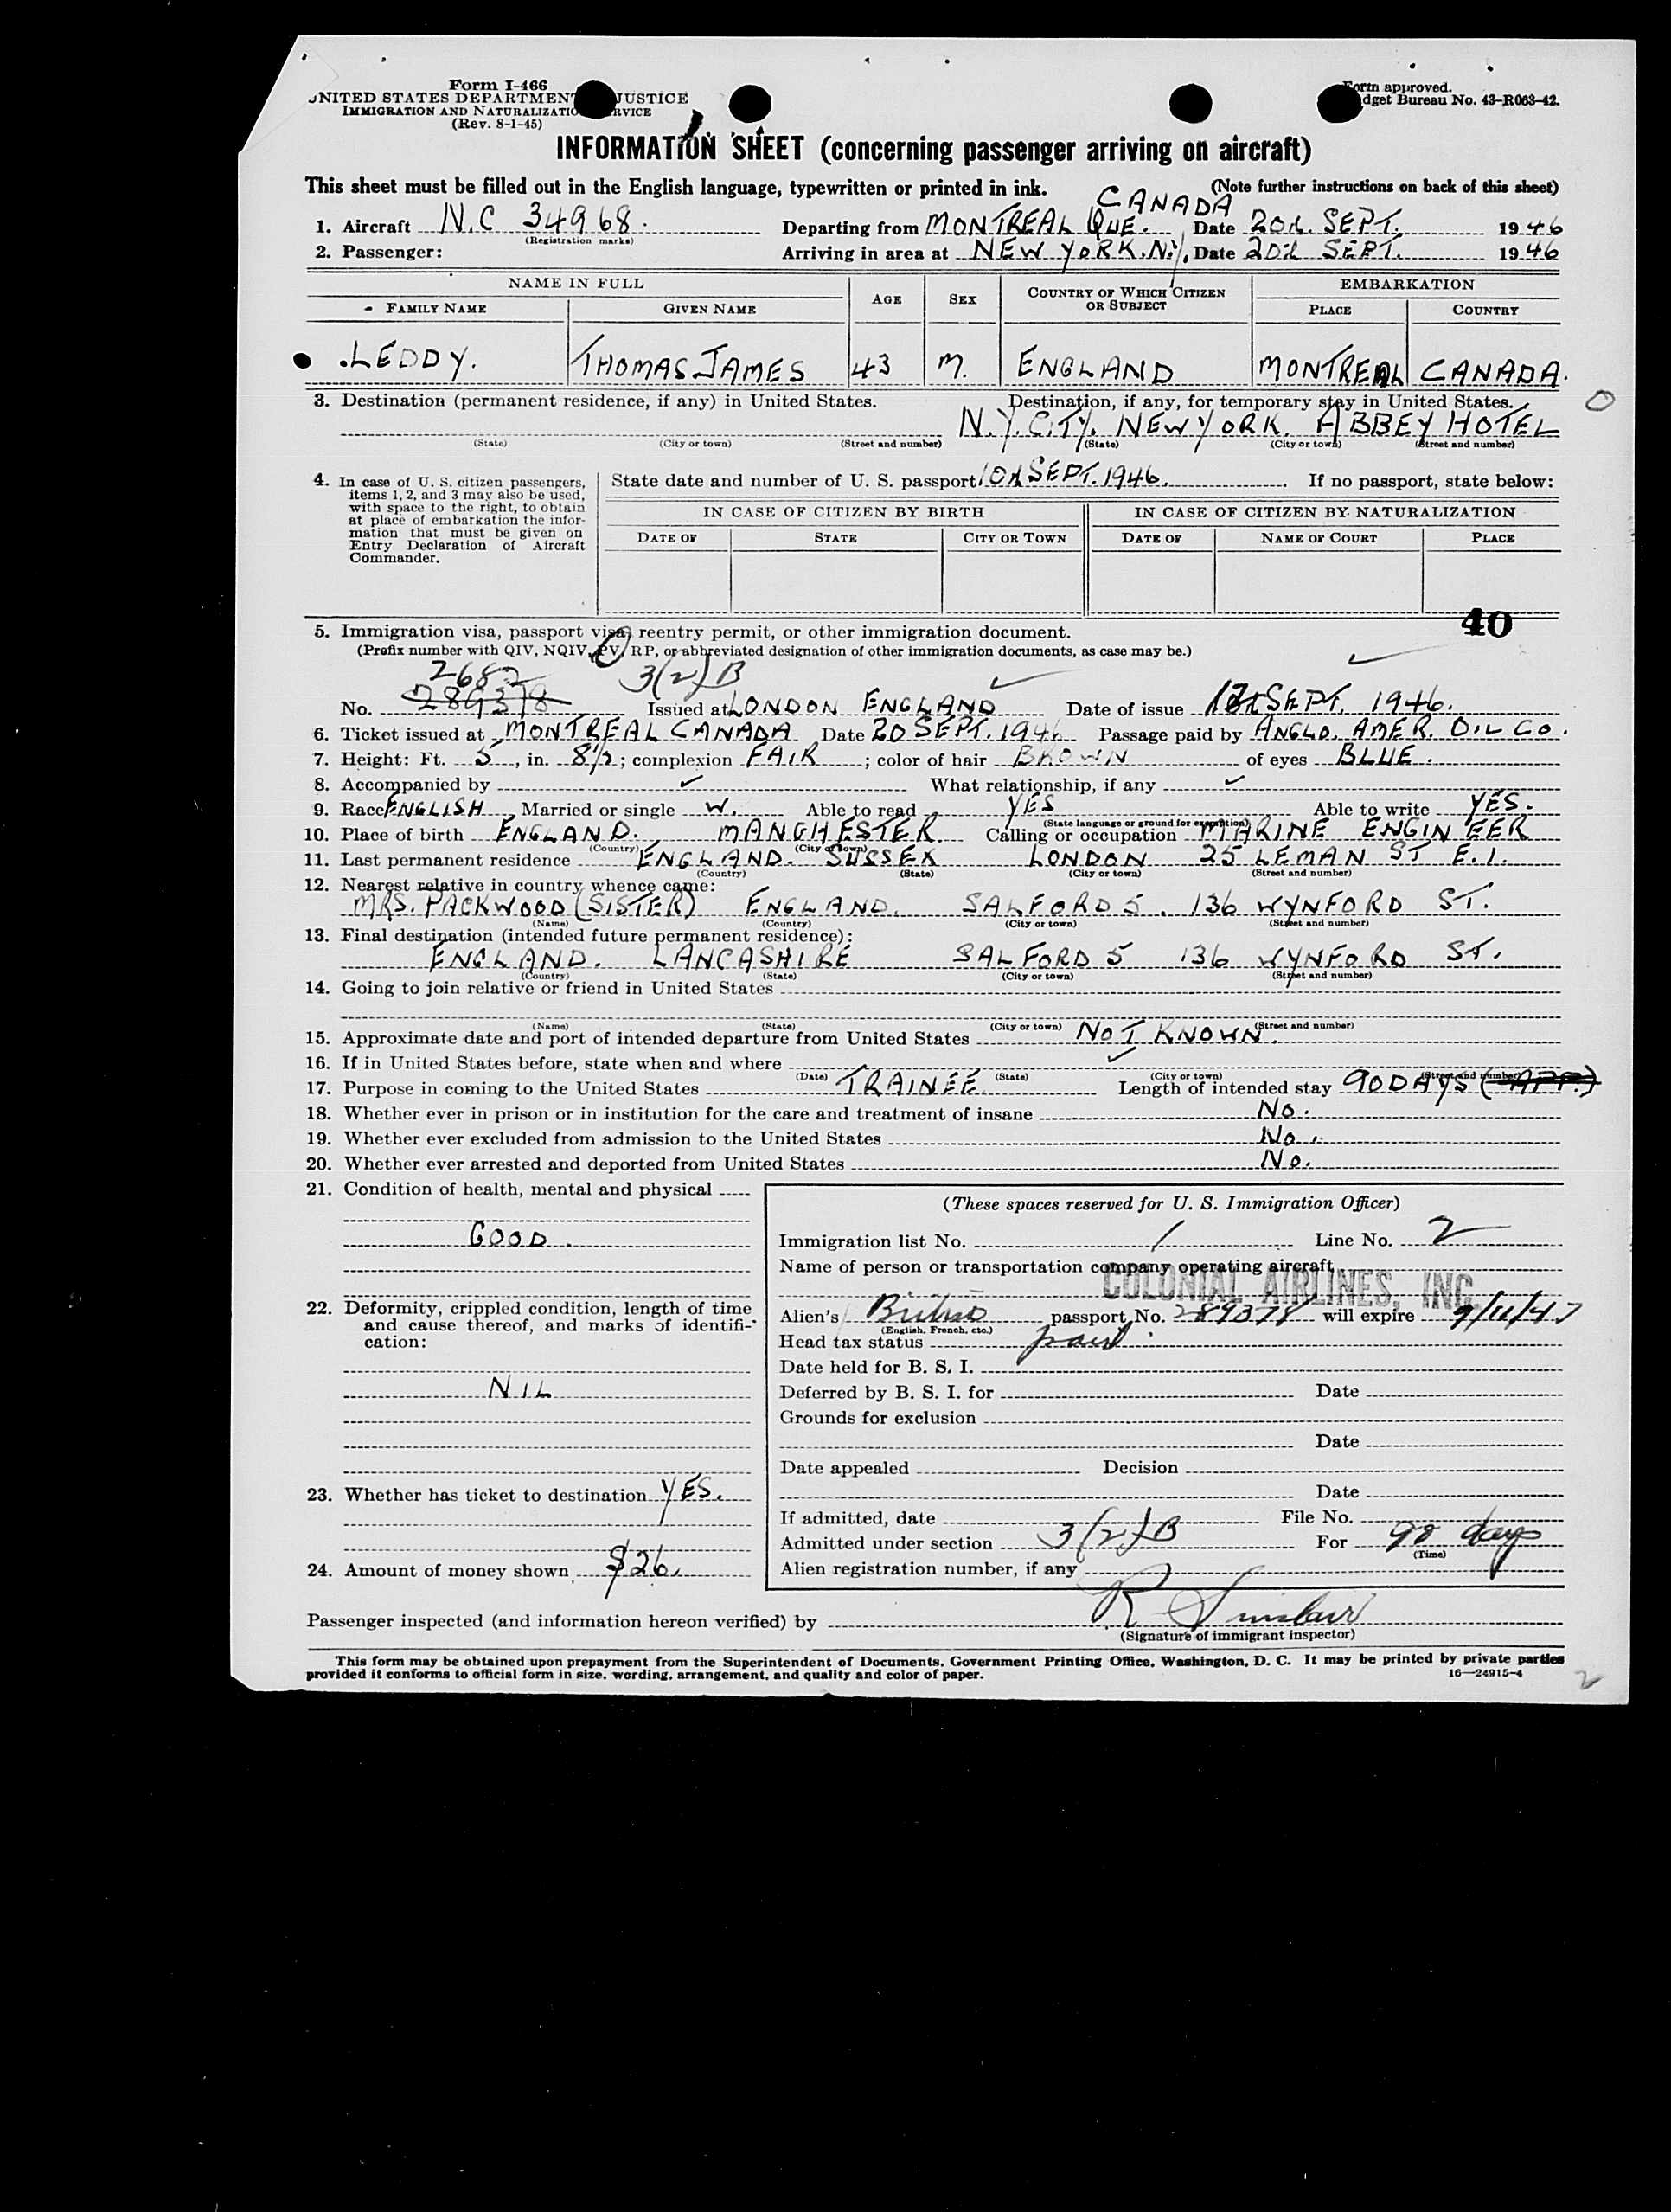 Form I-466
UNITED STATES DEPARTMENT JUSTICE
IMMIGRATION AND NATURALIZATION SERVICE
(Rev. 8-1-45)
Form approved.
Budget Bureau No. 43-R063-42.
INFORMATION SHEET (concerning passenger arriving on aircraft)
This sheet must be filled out in the English language, typewritten or printed in ink. (Note further instructions on back of this sheet)
CANADA
1. Aircraft N.C 34968. Departing from MONTREAL QUE. Date 20th SEPT. 1946
(Registration marks)
2. Passenger: Arriving in area at NEW YORK.N.Y. Date 20th SEPT. 1946
NAME IN FULL AGE SEX COUNTRY OF WHICH CITIZEN OR SUBJECT EMBARKATION
FAMILY NAME GIVEN NAME PLACE COUNTRY
LEDDY. THOMAS JAMES 43 M. ENGLAND MONTREAL CANADA.
3. Destination (permanent residence, if any) in United States. Destination, if any, for temporary stay in United States.
N.Y. CITY. NEW YORK. ABBEY HOTEL
(State) (City or town) (Street and number) (State) (City or town) (Street and number)
4. In case of U. S. citizen passengers, items 1, 2, and 3 may also be used, with space to the right, to obtain at place of embarkation the information that must be given on Entry Declaration of Aircraft Commander.
State date and number of U. S. passport SEPT. 1946. If no passport, state below:
IN CASE OF CITIZEN BY BIRTH IN CASE OF CITIZEN BY NATURALIZATION
DATE OF STATE CITY OR TOWN DATE OF NAME OF COURT PLACE
40
5. Immigration visa, passport visa, reentry permit, or other immigration document.
(Prefix number with QIV, NQIV, PV, RP, or abbreviated designation of other immigration documents, as case may be.)
2682 3(2)B
No. 289378 Issued at LONDON ENGLAND Date of issue SEPT. 1946.
6. Ticket issued at MONTREAL CANADA Date 20 SEPT. 1946 Passage paid by ANGLO. AMER. OIL CO.
7. Height: Ft. 5, in. 8½; complexion FAIR; color of hair BROWN of eyes BLUE.
8. Accompanied by ✓ What relationship, if any ✓
9. Race ENGLISH, Married or single W. Able to read YES Able to write YES.
(State language or ground for exemption)
10. Place of birth ENGLAND. MANCHESTER. Calling or occupation MARINE ENGINEER
(Country) (City or town)
11. Last permanent residence ENGLAND. SUSSEX LONDON 25 LEMAN ST E.1.
(Country) (State) (City or town) (Street and number)
12. Nearest relative in country whence came:
MRS. PACKWOOD (SISTER) ENGLAND. SALFORD 5. 136 WYNFORD ST.
(Name) (Country) (City or town) (Street and number)
13. Final destination (intended future permanent residence):
ENGLAND. LANCASHIRE SALFORD 5 136 WYNFORD ST.
(Country) (State) (City or town) (Street and number)
14. Going to join relative or friend in United States
(Name) (State) (City or town) (Street and number)
15. Approximate date and port of intended departure from United States NOT KNOWN.
16. If in United States before, state when and where ✓
(Date) (State) (City or town) (Street and number)
17. Purpose in coming to the United States TRAINEE. Length of intended stay 90 DAYS (APP.)
18. Whether ever in prison or in institution for the care and treatment of insane No.
19. Whether ever excluded from admission to the United States No.
20. Whether ever arrested and deported from United States No.
21. Condition of health, mental and physical
GOOD.
22. Deformity, crippled condition, length of time and cause thereof, and marks of identification:
NIL
23. Whether has ticket to destination YES.
24. Amount of money shown $26.
(These spaces reserved for U. S. Immigration Officer)
Immigration list No. 1 Line No. 2
Name of person or transportation company operating aircraft
COLONIAL AIRLINES, INC.
Alien's British passport No. 289378 will expire 9/11/47
(English, French, etc.)
Head tax status paid
Date held for B. S. I.
Deferred by B. S. I. for Date
Grounds for exclusion
Date
Date appealed Decision
Date
If admitted, date File No.
Admitted under section 3(2)B For 90 days
(Time)
Alien registration number, if any
Passenger inspected (and information hereon verified) by R Sinclair
(Signature of immigrant inspector)
This form may be obtained upon prepayment from the Superintendent of Documents, Government Printing Office, Washington, D. C. It may be printed by private parties
provided it conforms to official form in size, wording, arrangement, and quality and color of paper. 16—24915-4
2